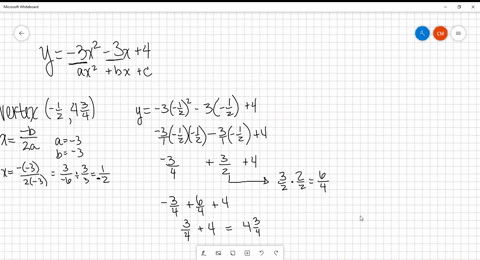 Microsoft Whiteboard
CM
y = -3x² - 3x + 4
ax² + bx + c
vertex (-1/2, 4 3/4)
x = -b/2a
a = -3
b = -3
x = -(-3)/2(-3) = 3/-6 ÷ 3/3 = 1/-2
y = -3(-1/2)² - 3(-1/2) + 4
-3/1(-1/2)(-1/2) - 3/1(-1/2) + 4
-3/4 + 3/2 + 4
3/2 · 2/2 = 6/4
-3/4 + 6/4 + 4
3/4 + 4 = 4 3/4